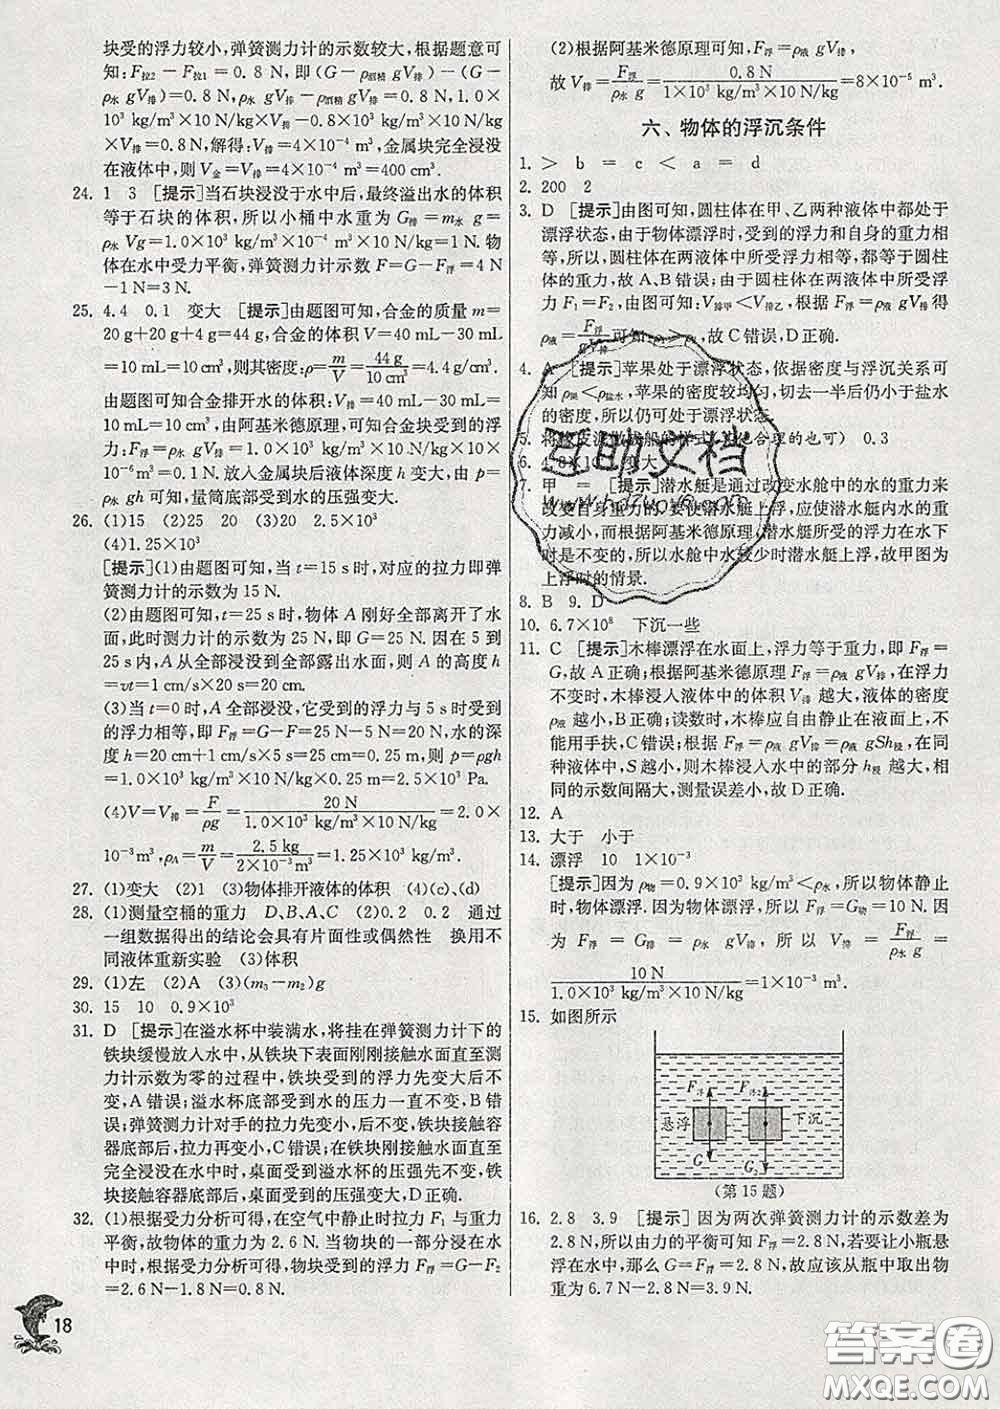 块受的浮力较小,弹簧测力计的示数较大,根据题意可
知:F拉2-F拉1=0.8 N,即(G-ρ酒精 gV排)-(G-
ρ水 gV排)=0.8 N,ρ水 gV排-ρ酒精 gV排=0.8 N,1.0×
10³ kg/m³×10 N/kg×V排-0.8×10³ kg/m³×10 N/kg×
V排=0.8 N,解得:V排=4×10⁻⁴ m³,金属块完全浸没
在液体中,则 V金=V排=4×10⁻⁴ m³=400 cm³.
24. 1 3 [提示]当石块浸没于水中后,最终溢出水的体积
等于石块的体积,所以小桶中水重为 G排=m水 g=
ρ水 Vg=1.0×10³ kg/m³×10⁻⁴ m³×10 N/kg=1 N.物
体在水中受力平衡,弹簧测力计示数 F=G-F浮=4 N
-1 N=3 N.
25. 4.4 0.1 变大 [提示]由题图可知,合金的质量 m=
20 g+20 g+4 g=44 g,合金的体积 V=40 mL-30 mL
=10 mL=10 cm³,则其密度:ρ=m/V=44 g/10 cm³=4.4 g/cm³.
由题图可知合金排开水的体积:V排=40 mL-30 mL=
10 mL=10 cm³,由阿基米德原理,可知合金块受到的浮
力:F浮=G排=ρ水 gV排=1.0×10³ kg/m³×10 N/kg×10×
10⁻⁶ m³=0.1 N.放入金属块后液体深度 h 变大,由 p=
ρ水 gh可知,量筒底部受到水的压强变大.
26. (1)15 (2)25 20 (3)20 2.5×10³
(4)1.25×10³
[提示](1)由题图可知,当 t=15 s时,对应的拉力即弹
簧测力计的示数为 15 N.
(2)由题图可知,t=25 s时,物体 A 刚好全部离开了水
面,此时测力计的示数为 25 N,即 G=25 N.因在 5 到
25 s内,A从全部浸没到全部露出水面,则 A的高度 h
=vt=1 cm/s×20 s=20 cm.
(3)当 t=0时,A全部浸没,它受到的浮力与 5 s时受到
的浮力相等,即 F浮=G-F=25 N-5 N=20 N,水的深
度 h=20 cm+1 cm/s×5 s=25 cm=0.25 m,则 p=ρgh
=1.0×10³ kg/m³×10 N/kg×0.25 m=2.5×10³ Pa.
(4)V=V排=F/ρg=20 N/1.0×10³ kg/m³×10 N/kg=2.0×
10⁻³m³,ρA=m/V=2.5 kg/2×10⁻³ m³=1.25×10³ kg/m³.
27. (1)变大 (2)1 (3)物体排开液体的体积 (4)(c)、(d)
28. (1)测量空桶的重力 D、B、A、C (2)0.2 0.2 通过
一组数据得出的结论会具有片面性或偶然性 换用不
同液体重新实验 (3)体积
29. (1)左 (2)A (3)(m₃-m₂)g
30. 15 10 0.9×10³
31. D [提示]在溢水杯中装满水,将挂在弹簧测力计下的
铁块缓慢放入水中,从铁块下表面刚刚接触水面直至测
力计示数为零的过程中,铁块受到的浮力先变大后不
变,A错误;溢水杯底部受到水的压强始终不变,B错
误;弹簧测力计对手的拉力先变小,后不变,铁块接触容
器底部后,拉力再变小,C错误;在铁块刚接触水面直至
完全浸没在水中时,桌面受到溢水杯的压强先不变,铁
块接触容器底部后,桌面受到的压强变大,D正确.
32. (1)根据受力分析可得,在空气中静止时拉力 F₁ 与重力
平衡,故物块的重力为 2.6 N.当物块的一部分浸在水
中时,根据受力分析可得,物块受到的浮力 F浮=G-F₂
=2.6 N-1.8 N=0.8 N.
18
(2)根据阿基米德原理可知,F浮=ρ液 gV排,
故 V排=F浮/ρ水 g=0.8 N/1×10³ kg/m³×10 N/kg=8×10⁻⁵ m³.
六、物体的浮沉条件
1. > b = c < a = d
2. 200 2
3. D [提示]由图可知,圆柱体在甲、乙两种液体中都处于
漂浮状态,由于物体漂浮时,受到的浮力和自身的重力相
等,所以,圆柱体在两液体中所受浮力相等,都等于圆柱
体的重力,故A、B错误;由于圆柱体在两液体中所受浮
力 F₁=F₂,由图可知:V排甲<V排乙,根据 F浮=ρ液 gV排得
ρ液=F浮/gV排可知:ρ₁>ρ₂,故C错误,D正确.
4. A [提示]苹果处于漂浮状态,依据密度与浮沉关系可
知 ρ果<ρ盐水,苹果的密度较均匀,切去一半后仍小于盐水
的密度,所以仍可处于漂浮状态.
5. 将橡皮泥做成船的样式(其他合理的也可) 0.3
6. 4.8×10 变大
7. 甲 = [提示]潜水艇是通过改变水舱中的水的重力来
改变自身重力的.要使潜水艇上浮,应使潜水艇中水的
重力减小,而根据阿基米德原理,潜水艇所受的浮力在水下
时是不变的,所以水舱中水较少时潜水艇上浮,故甲图为
上浮时的情景.
8. B 9. D
10. 6.7×10⁸ 下沉一些
11. C [提示]木棒漂浮在水面上,浮力等于重力,即 F浮=
G,故A正确;根据阿基米德原理 F浮=ρ液 gV排,在浮力
不变时,木棒浸入液体中的体积 V排 越大,液体的密度
ρ液 越小,B正确;读数时,木棒应自由静止在液面上,不
能用手扶,C错误;根据 F浮=ρ液 gV排=ρ液 gSh浸,在同
种液体中,S越小,则木棒浸入水中的部分 h浸越大,相
同的示数间隔大,测量误差小,故D正确.
12. A
13. 大于 小于
14. 漂浮 10 1×10⁻³
[提示]因为 ρ物=0.9×10³ kg/m³<ρ水,所以物体静止
时,物体漂浮.因为物体漂浮,所以 F浮=G物=10 N.因
为 F浮=G排=ρ水 gV排,所以 V排=F浮/ρ水 g=
10 N/1.0×10³ kg/m³×10 N/kg=1×10⁻³ m³
15. 如图所示
F浮 F浮2
悬浮 下沉
G G₂
(第15题)
16. 2.8 3.9 [提示] 因为两次弹簧测力计的示数差为
2.8 N,所以由力的平衡可知 F浮=2.8 N,若要让小瓶悬
浮在水中,那么 G=F浮=2.8 N,故应该从瓶中取出物
重为 6.7 N-2.8 N=3.9 N.
互助文档
答案圈
MXQE.COM